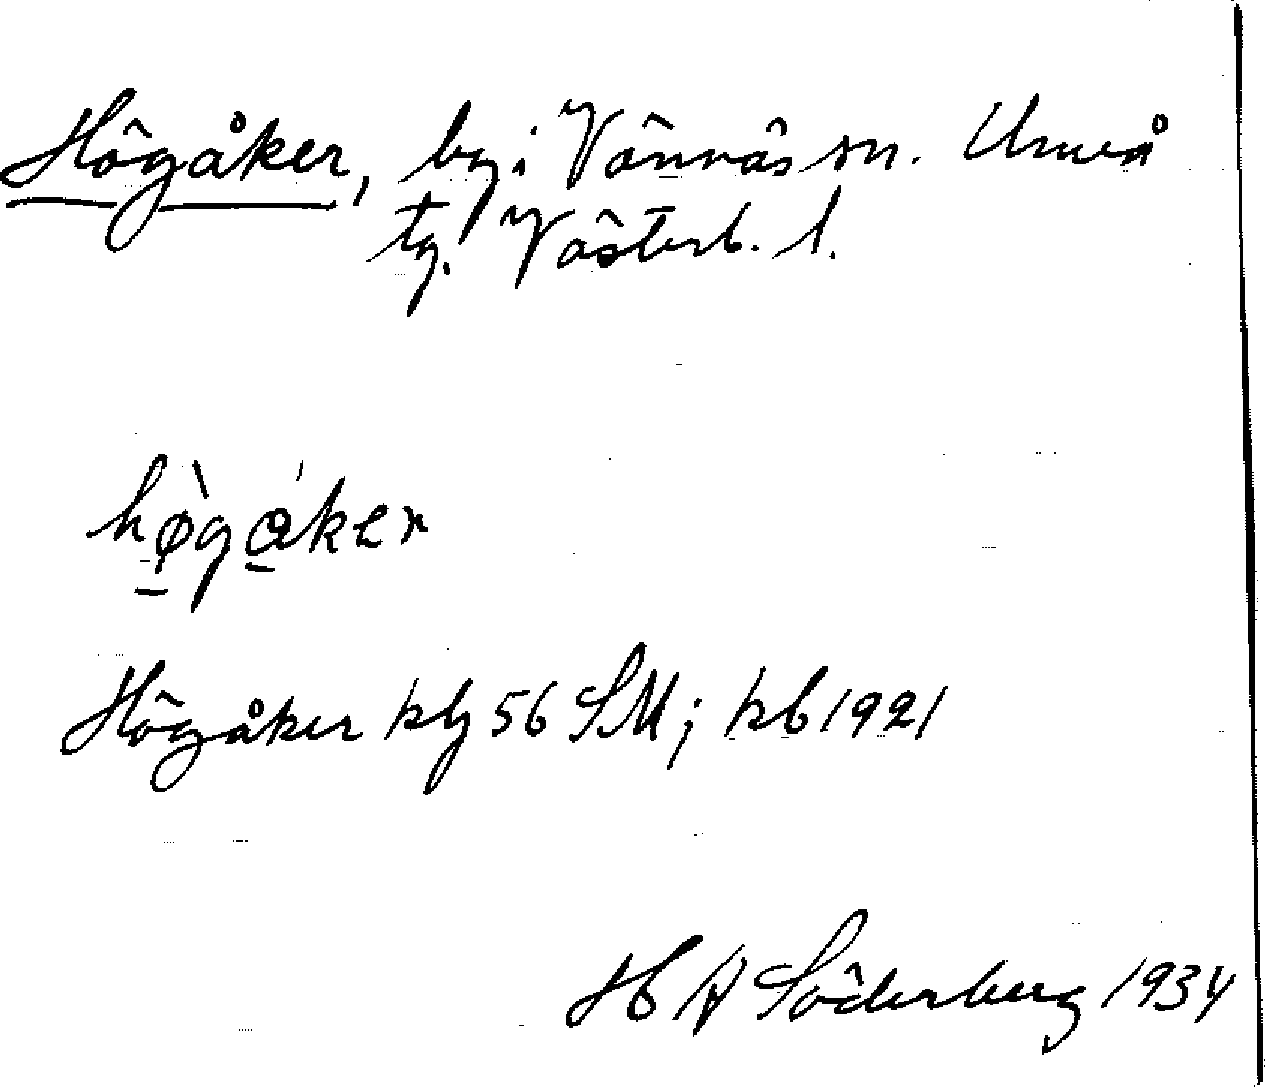 Högåker, by i Vännäs sn. Umeå
tg. Västerb. l.
hø̀gáker
Högåker kbl 56 SM; kb 1921
H A Söderberg 1934